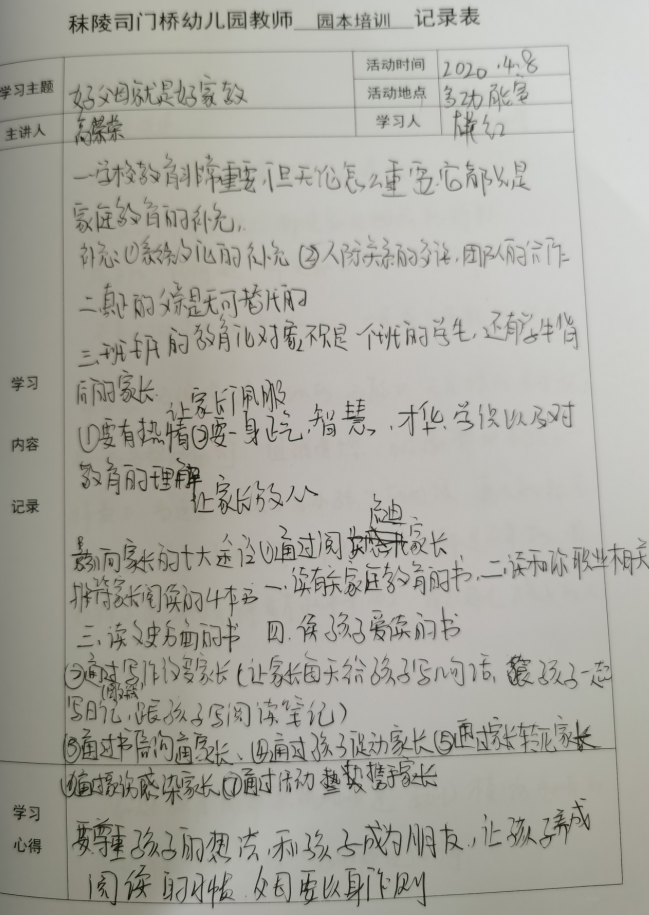 秣陵司门桥幼儿园教师 园本培训 记录表
学习主题 好父母就是好家教 活动时间 2020.4.8
活动地点 多功能室
主讲人 高荣荣 学习人
一学校教育非常重要,但无论怎么重要,它都只是
家庭教育的补充,
补充:①系统文化的补充 ②人际关系的 团队的合作
二真正的父亲是无可替代的
三班主任的教育化对象不只是一个班的学生,还有学生背
后的家长
让家长们佩服
①要有热情②要一身正气,智慧,才华,学识以及对
教育的理解
让家长的
学习
内容
记录
启迪
影响家长的七大途径①通过阅读 家长
推荐家长阅读的4本书 一.读有关家庭教育的书,二读和你职业相关
三、读文史方面的书 四.读孩子爱读的书
②通过写作 家长(让家长每天给孩子写几句话, 孩子一起
写日记, 跟孩子写阅读笔记)
③通过书信 家长、④通过孩子促动家长⑤通过家长转化家长
⑥通过 感染家长⑦通过活动 携手家长
学习
心得
要尊重孩子的想法,和孩子成为朋友,让孩子养成
阅读的习惯.父母要以身作则